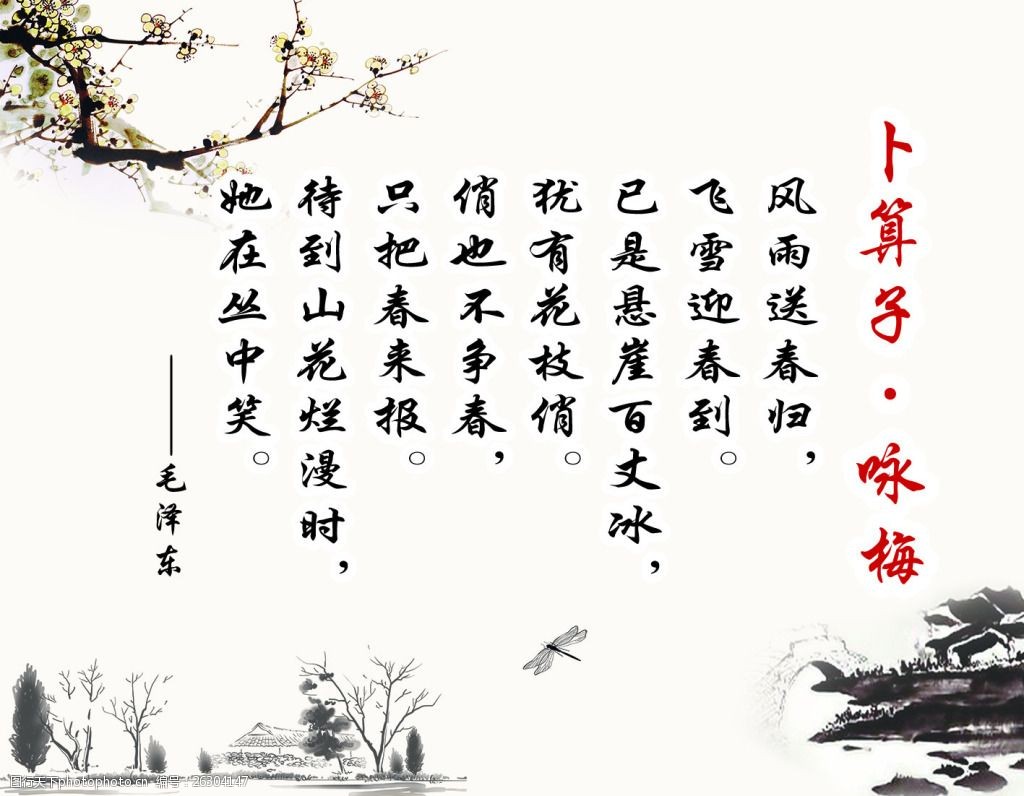 卜算子·咏梅
风雨送春归，
飞雪迎春到。
已是悬崖百丈冰，
犹有花枝俏。
俏也不争春，
只把春来报。
待到山花烂漫时，
她在丛中笑。
——毛泽东
图行天下photophoto.cn 编号：26304147